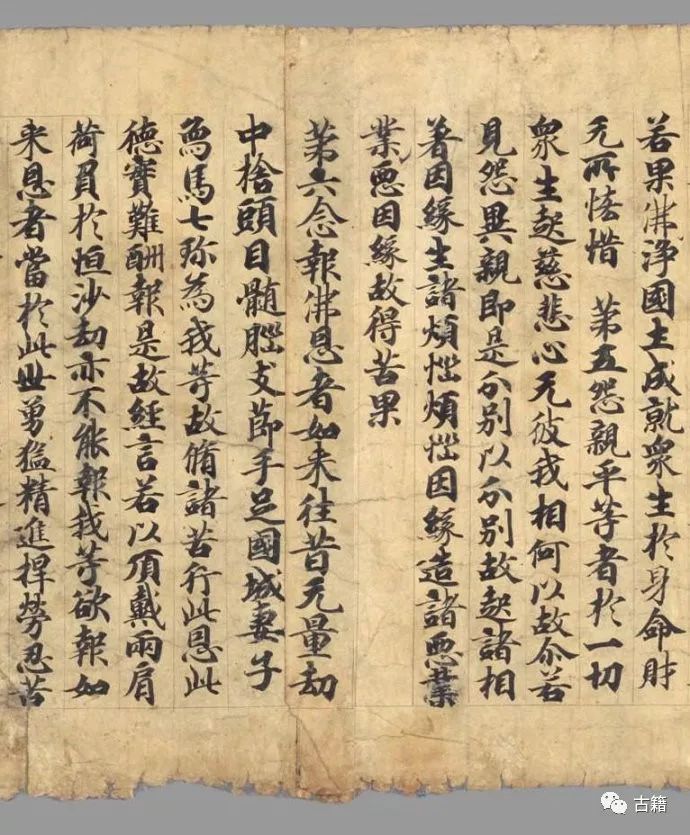 若果佛浄國土成就衆生於身命財
无所悋惜　第五怨親平等者於一切
衆生起慈悲心无彼我相何以故尒若
見怨異親即是分別以分別故起諸相
著因緣生諸煩惱煩惱因緣造諸悪業
業悪因緣故得苦果
第六念報佛恩者如来往昔无量劫
中捨頭目髓脳支莭手足國城妻子
烏馬七珎為我等故脩諸苦行此恩此
徳實難酬報是故經言若以頂戴兩肩
荷負於恒沙劫亦不能報我等欲報如
来恩者當於此世勇猛精進捍勞忍苦
古籍